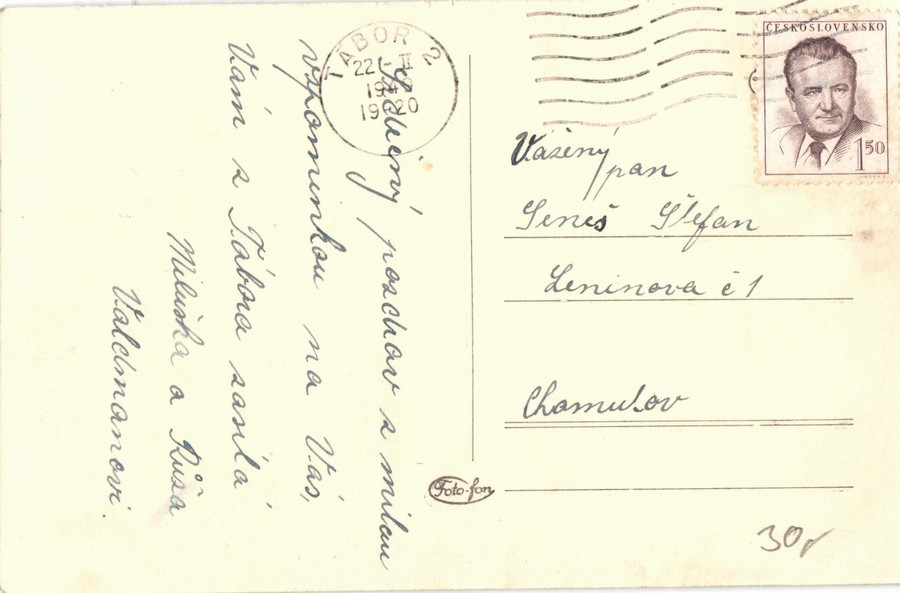 Srdečný pozdrav s milou
vzpomínkou na Vás,
Vám z Tábora zasílá
Miluška a Růža
Valdmanovi.
TÁBOR 2
22.-II
19
19-20
ČESKOSLOVENSKO
1 50
Vážený
pan
Seneš Štefan
Leninova č 1
Chomutov
Foto-fon
30,